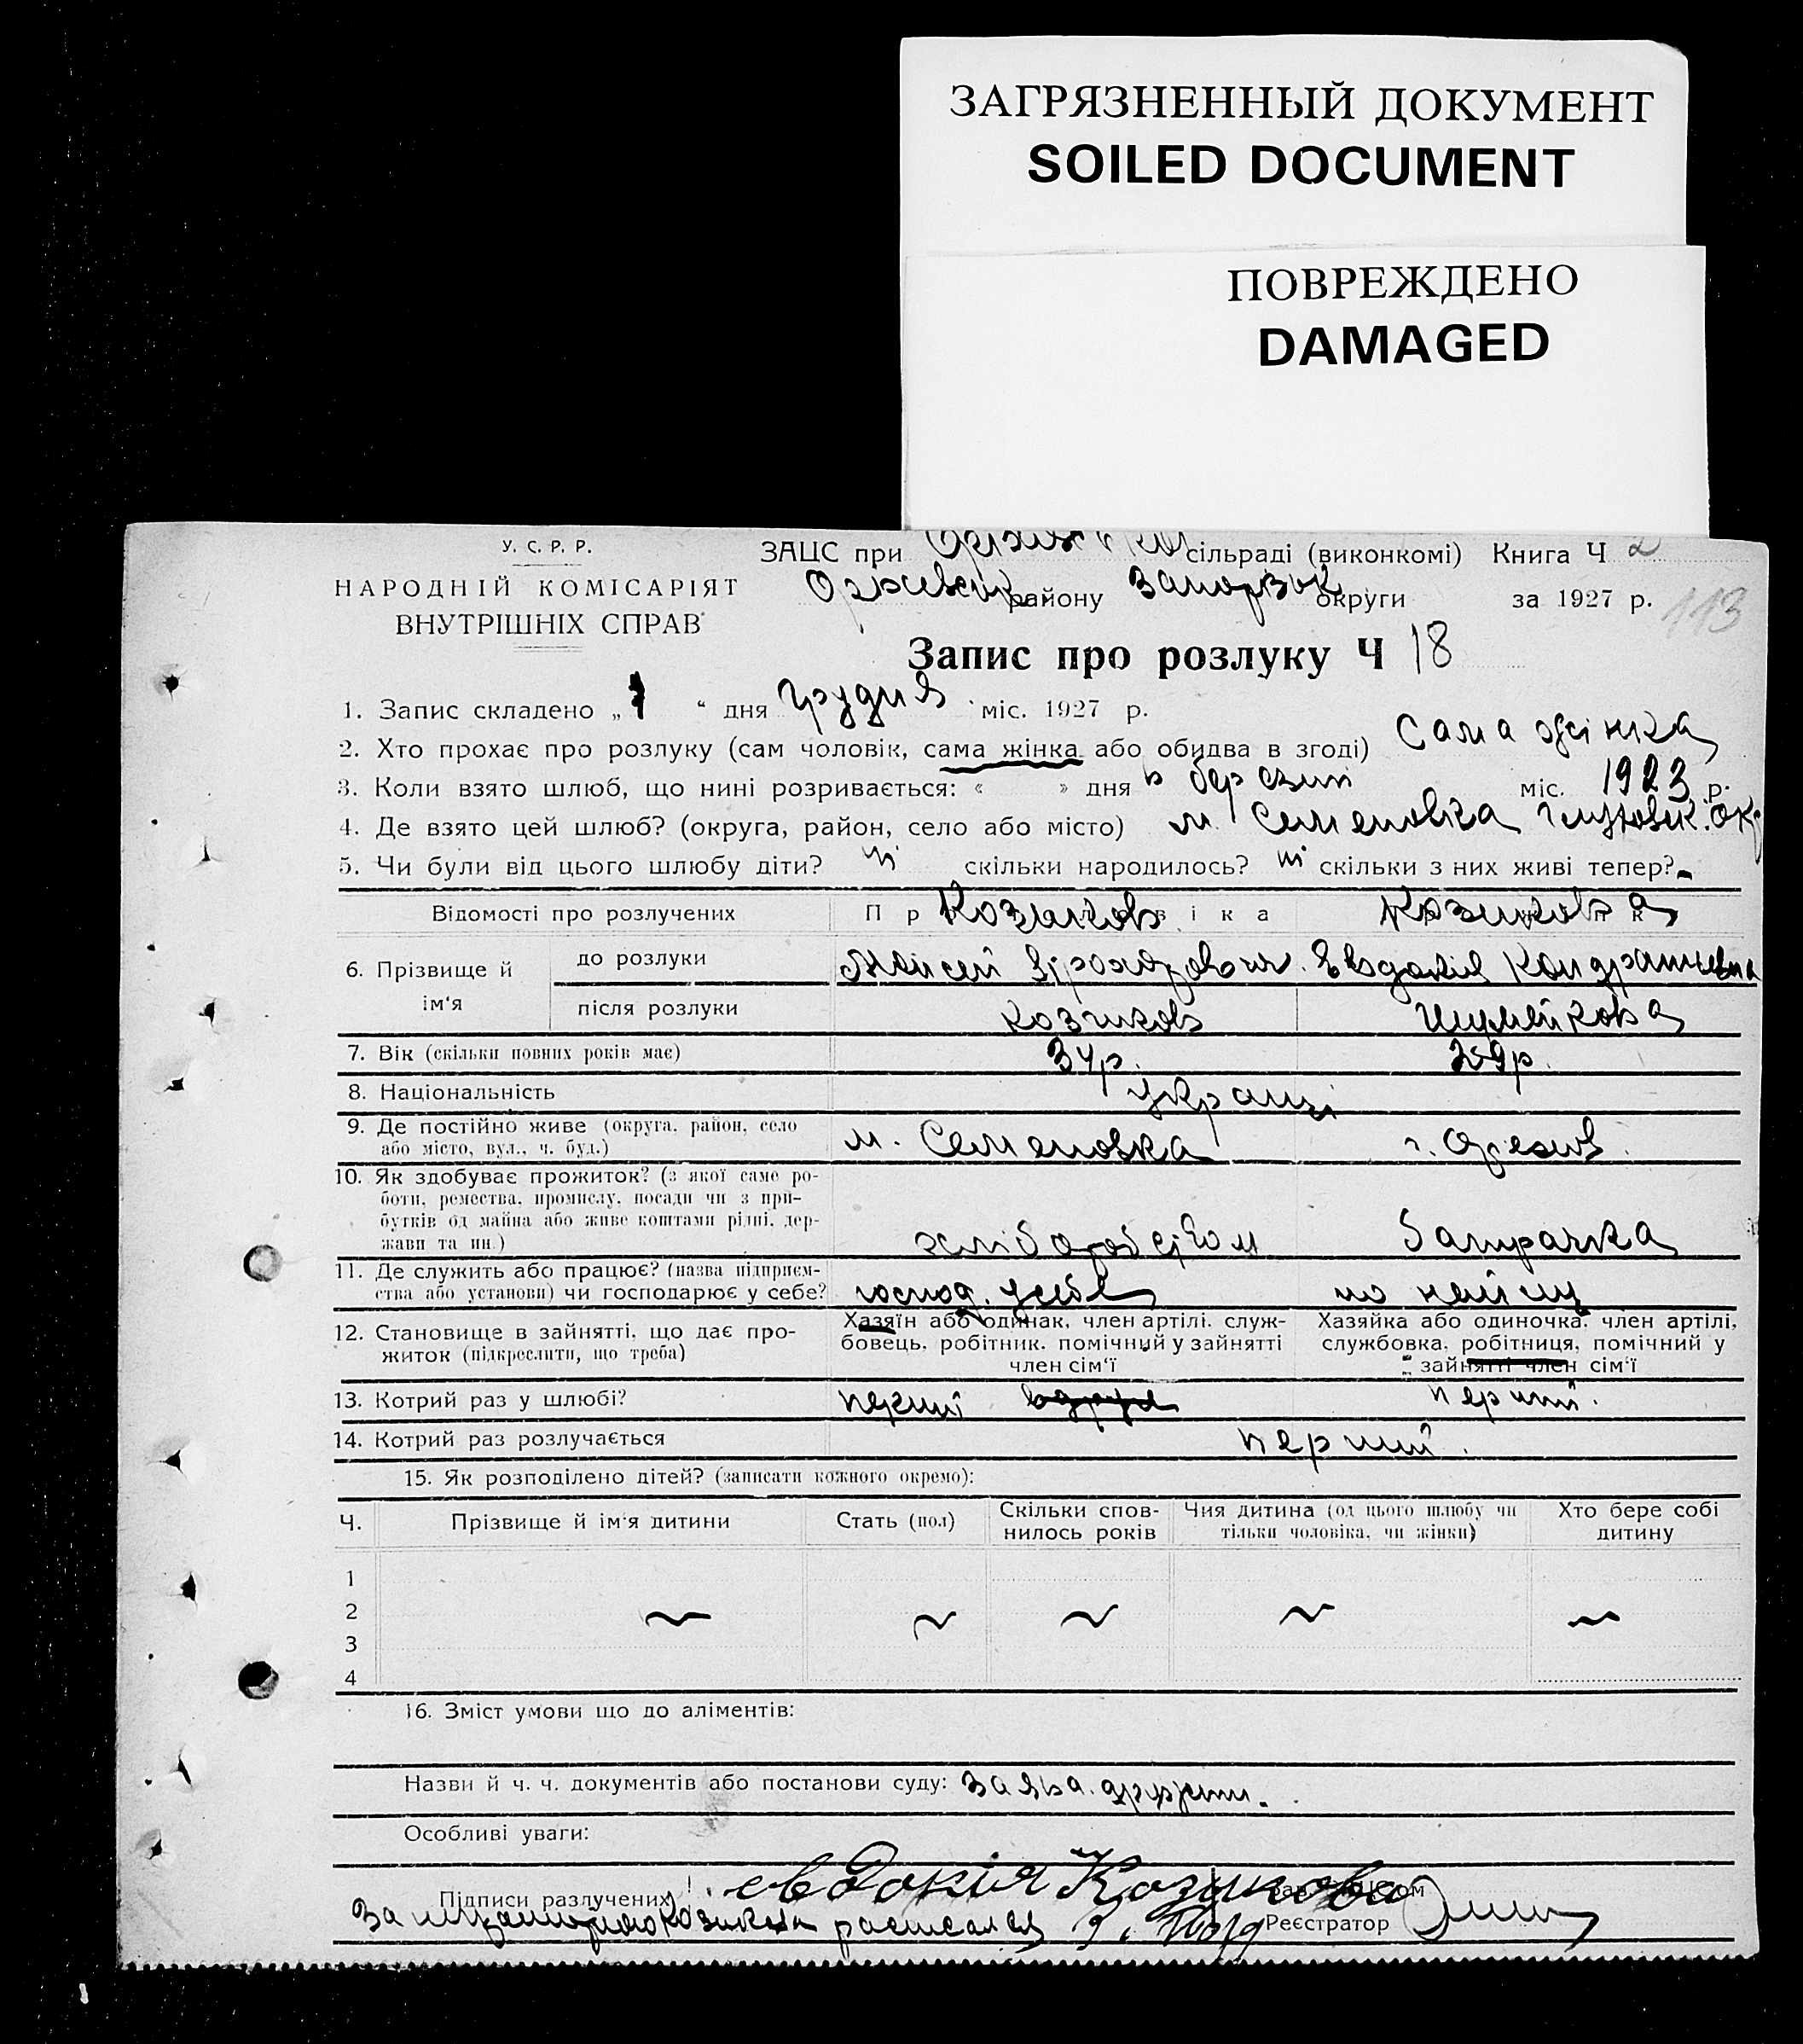 ЗАГРЯЗНЕННЫЙ ДОКУМЕНТ
SOILED DOCUMENT
ПОВРЕЖДЕНО
DAMAGED
У. С. Р. Р.
НАРОДНІЙ КОМІСАРІЯТ
ВНУТРІШНІХ СПРАВ
ЗАЦС при сільраді (виконкомі) Книга Ч 2
району Запорізьк округи за 1927 р. 113
Запис про розлуку Ч 18
1. Запис складено „1“ дня грудня міс. 1927 р.
2. Хто прохає про розлуку (сам чоловік, сама жінка або обидва в згоді) Сама жінка
3. Коли взято шлюб, що нині розривається: « » дня в березні міс. 1923 р.
4. Де взято цей шлюб? (округа, район, село або місто) м. Семеновка Глуховск. Окр
5. Чи були від цього шлюбу діти? ні скільки народилось? ні скільки з них живі тепер? -
Відомості про розлучених
Козиков Козикова
6. Прізвище й ім'я
до розлуки Мойсей Евдокія Кондратьевна
після розлуки Козиков Шумейкова
7. Вік (скільки повних років має) 34р. 29р.
8. Національність українці
9. Де постійно живе (округа, район, село
або місто, вул., ч. буд.) м. Семеновка г. Орехив.
10. Як здобуває прожиток? (з якої саме ро-
боти, ремества, промислу, посади чи з при-
бутків од майна або живе коштами рідні, дер-
жави та ин.) хліборобством батрачка
11. Де служить або працює? (назва підприєм-
ства або установи) чи господарює у себе? господ. у себе по найму
12. Становище в зайнятті, що дає про-
житок (підкреслити, що треба)
Хазяїн або одинак, член артілі, служ-
бовець, робітник, помічний у зайнятті
член сім'ї
Хазяйка або одиночка, член артілі,
службовка, робітниця, помічний у
зайнятті член сім'ї
13. Котрий раз у шлюбі? перший перший.
14. Котрий раз розлучається перший.
15. Як розподілено дітей? (записати кожного окремо):
Ч. Прізвище й ім'я дитини Стать (пол) Скільки спов-
нилось років Чия дитина (од цього шлюбу чи
тільки чоловіка, чи жінки) Хто бере собі
дитину
1
2
3
4
16. Зміст умови що до аліментів:
Назви й ч. ч. документів або постанови суду: заява.
Особливі уваги:
Підписи разлучених евдокія Козикова
За расписался
Реєстратор